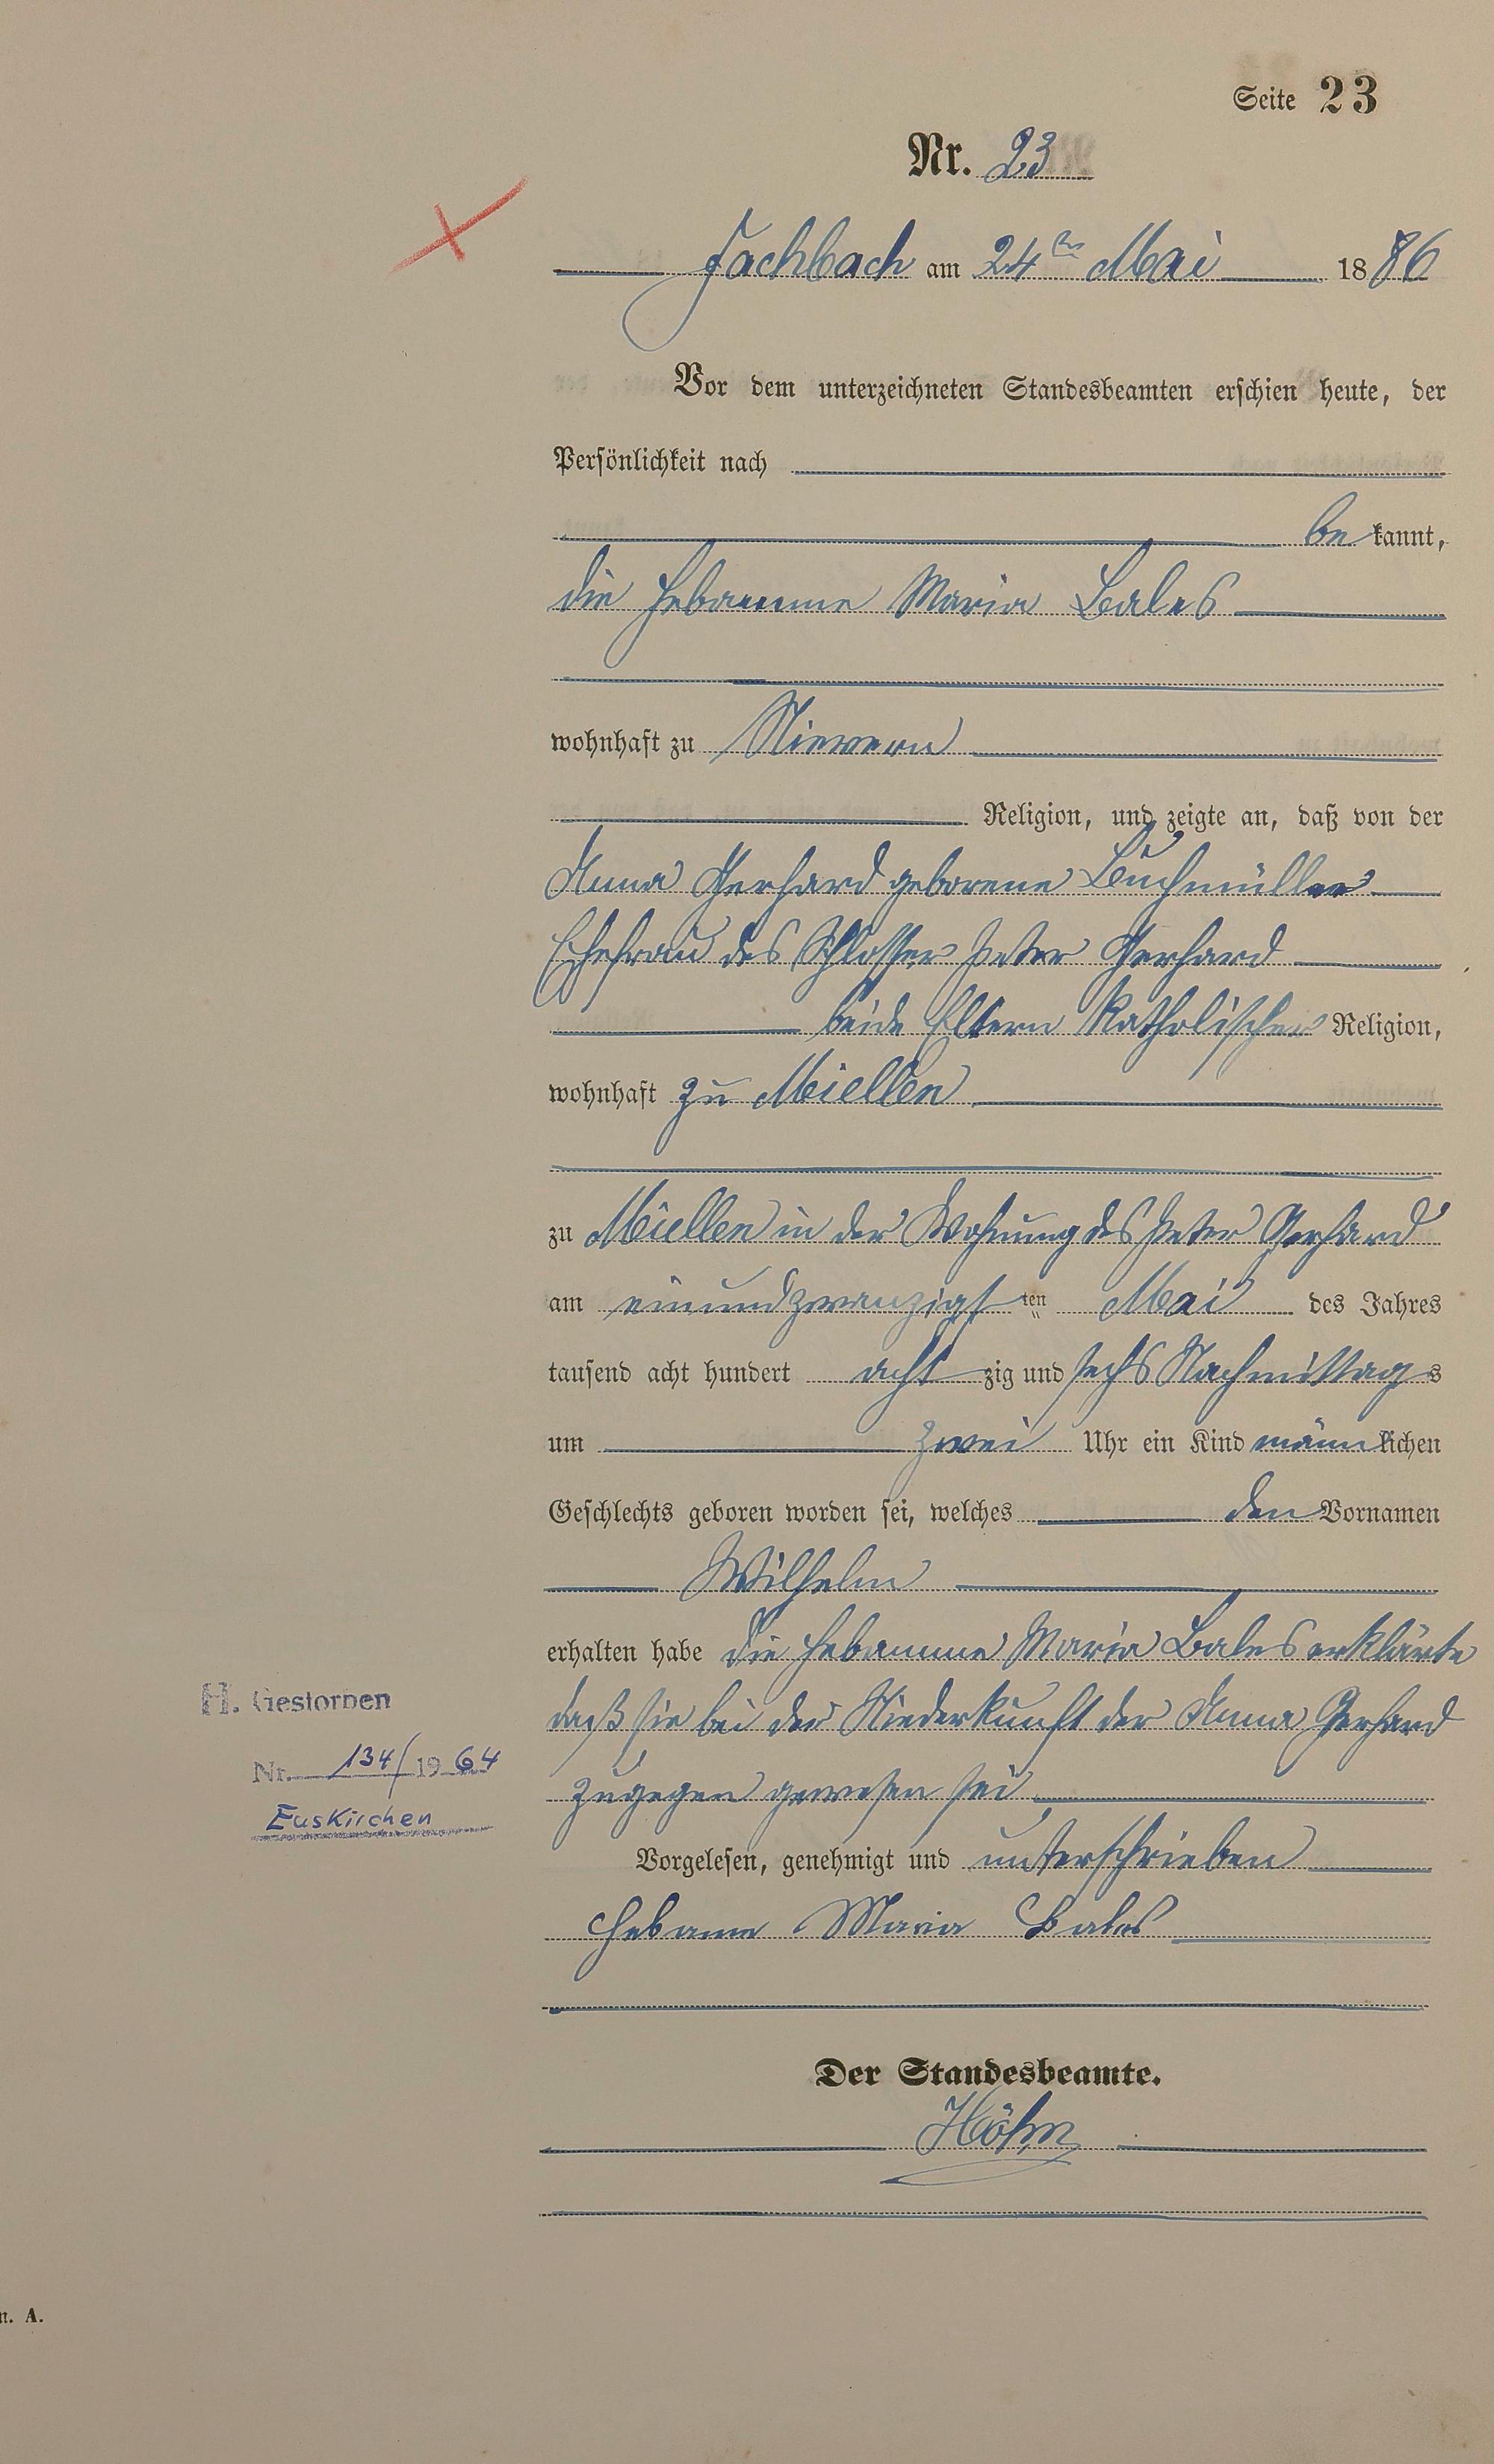 Seite 23
Nr. 23
Fachbach am 24ten Mai 1886
Vor dem unterzeichneten Standesbeamten erschien heute, der
Persönlichkeit nach
be kannt,
die Hebamme Maria Bales
wohnhaft zu Nievern
Religion, und zeigte an, daß von der
Anna Gerhard geborene Buchmüller
Ehefrau des Schlosser Peter Gerhard
beide Eltern katholischer Religion,
wohnhaft zu Miellen
zu Miellen in der Wohnung des Peter Gerhard
am einundzwanzigsten Mai des Jahres
tausend acht hundert acht zig und sechs Nachmittags
um zwei Uhr ein Kind männlichen
Geschlechts geboren worden sei, welches den Vornamen
Wilhelm
erhalten habe die Hebamme Maria Bales erklärte
daß sie bei der Niederkunft der Anna Gerhard
zugegen gewesen sei
Vorgelesen, genehmigt und unterschrieben
Hebame Maria Bales
Der Standesbeamte.
Höhn
H. Gestorben
Nr. 134/1964
Euskirchen
n. A.